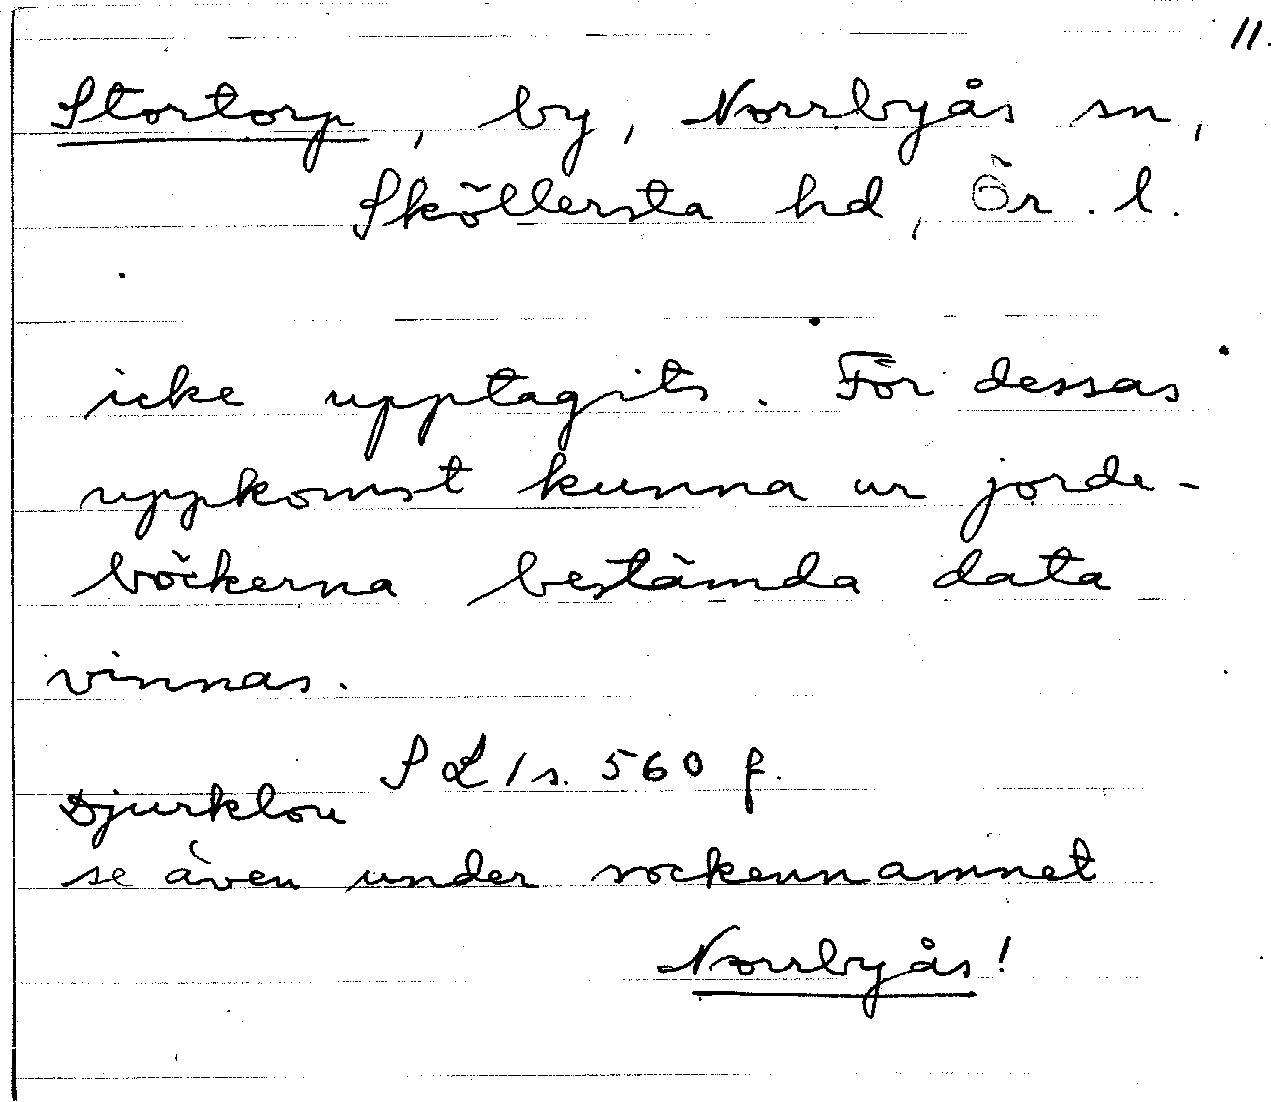 11.
Stortorp, by, Norrbyås sn,
Sköllersta hd, Ör. l.
icke upptagits. För dessas
uppkomst kunna ur jorde-
böckerna bestämda data
vinnas.
S L 1 s. 560 f.
Djurklou
se även under sockennamnet
Norrbyås!